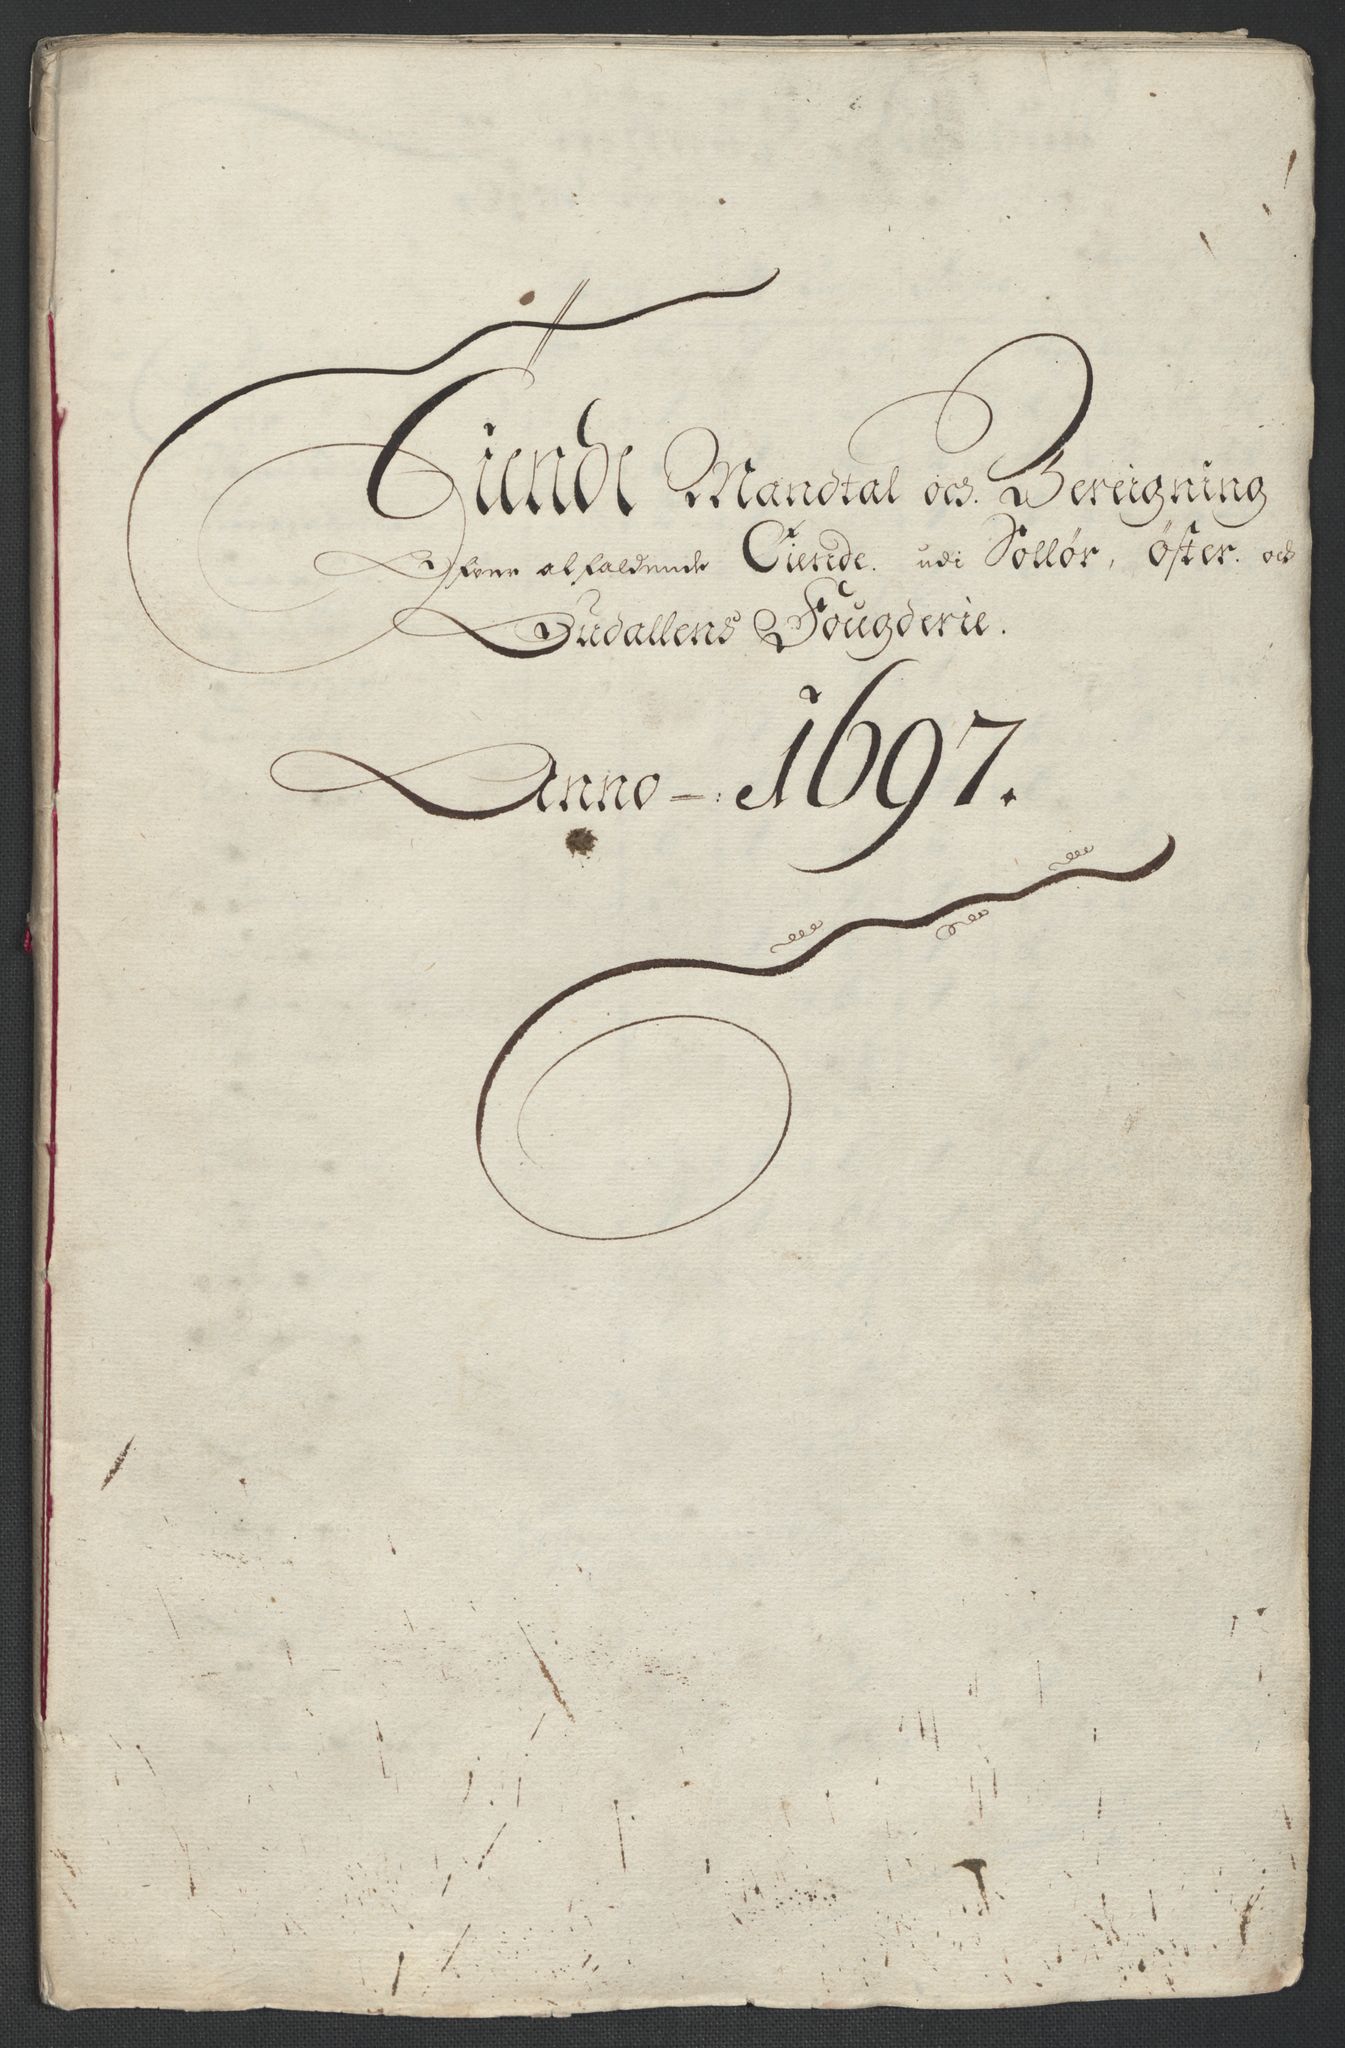 Tiende Mandtal och Bereigning
Ofver alfaldende Tiende udi Sollør, Øster och
Gudallens Fougderie.
Anno 1697.